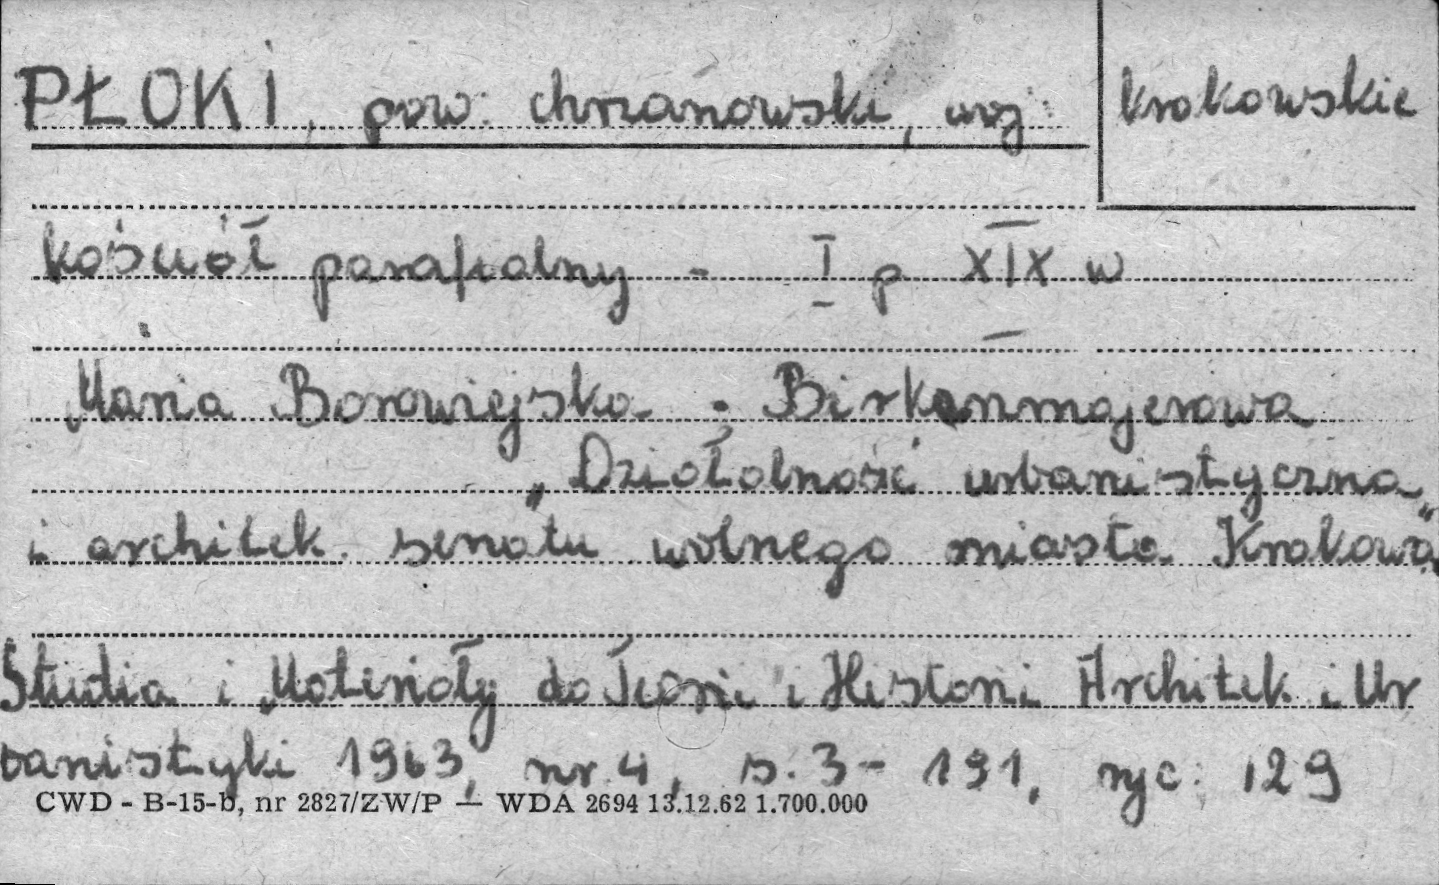 PŁOKI, pow. chrzanowski, woj. krakowskie
kościół parafialny - I p XIX w
Maria Borowiejska - Birkenmajerowa
„Działalność urbanistyczna
i architek. senatu wolnego miasta Krakowa"
Studia i Materiały do Teorii i Historii Architek i Ur
banistyki 1963, nr 4, s. 3 - 191, ryc. 129
CWD - B-15-b, nr 2827/ZW/P — WDA 2694 13.12.62 1.700.000